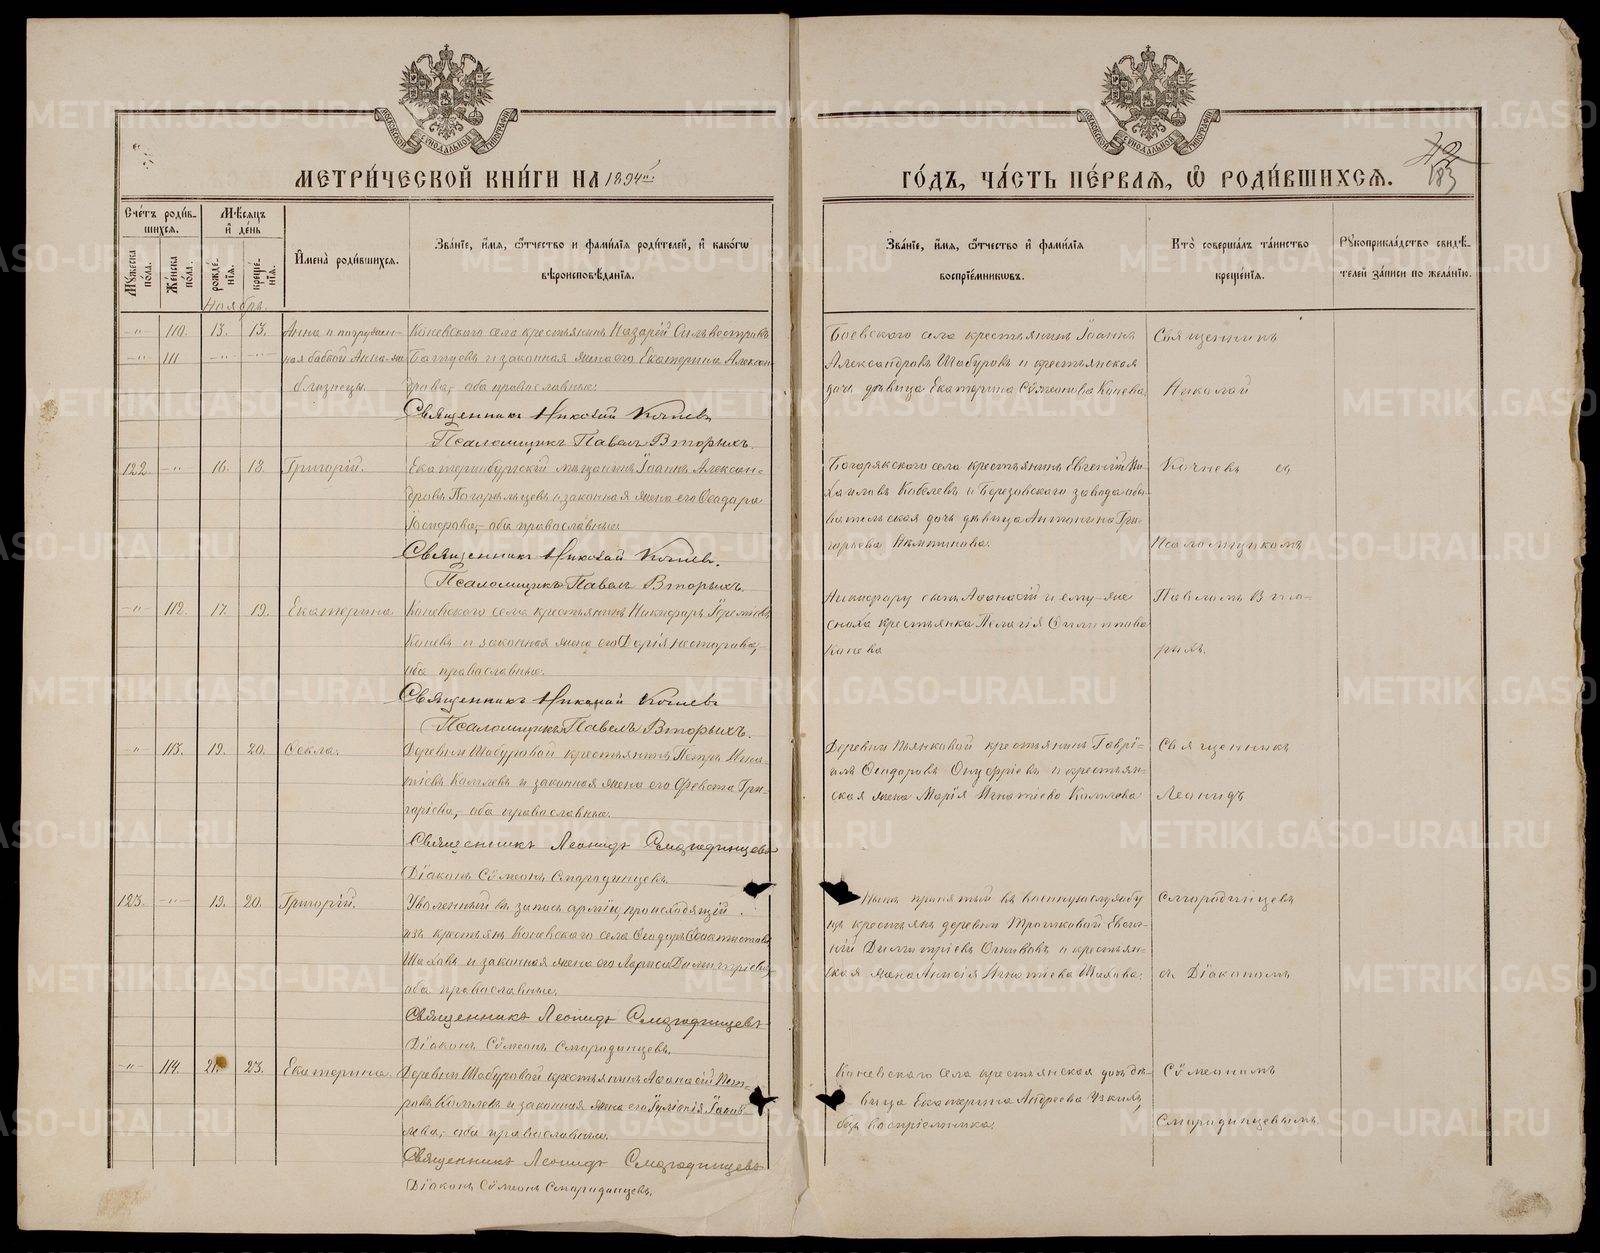 МОСКОВСКОЙ СУНОДАЛЬНОЙ ТИПОГРАФІИ
МОСКОВСКОЙ СУНОДАЛЬНОЙ ТИПОГРАФІИ
МЕТРИ́ЧЕСКОЙ КНИ́ГИ НА 1894й.
ГО́ДЪ, ЧА́СТЬ ПЕ́РВАЯ, Ѿ РОДИ́ВШИХСЯ.
42
183
Сче́тъ роди́в-
шихся.
Мѣ́сяцъ
и де́нь
Му́жеска по́ла.
Же́нска по́ла.
рожде́нія.
креще́нія.
И҆мена̀ роди́вшихся.
Зва́ніе, и҆́мя, ѻ҆́тчество и фами́лія роди́телей, и҆ како́гѡ
вѣроисповѣ́данія.
Зва́ніе, и҆́мя, ѻ҆́тчество и҆ фами́лія
воспріе́мниковъ.
Кто̀ соверша́лъ та́инство
креще́нія.
Рукоприкла́дство свидѣ́-
телей за́писи по жела́нію.
Ноябрь.
-"- 110. 13. 13. Анна и погружен-
-"- 111 -"- -"- ная бабкой Анна-же
близнецы.
Коневского села крестьянинъ Назарій Сильвестровъ
Батуевъ и законная жена его Екатерина Алексан-
дрова, оба православные.
Священникъ Николай Кочневъ
Псаломщикъ Павелъ Вторыхъ.
Боевского села крестьянинъ Іоаннъ
Александровъ Шабуровъ и крестьянская
дочь дѣвица Екатерина Сѵмеонова Конева.
Священникъ
Николай
122. -"- 16. 18. Григорій.
Екатеринбургскій мѣщанинъ Іоаннъ Алексан-
дровъ Погорѣльцевъ и законная жена его Ѳеодора
оба православные
Священникъ Николай Кочневъ.
Псаломщикъ Павелъ Вторыхъ.
Богарякского села крестьянинъ Евгеній Ми-
хаиловъ Кобелевъ и Березовского завода обы-
вательская дочь дѣвица Антонина Гри-
горьева
Кочневъ съ
Псаломщикомъ
-"- 112. 17. 19. Екатерина
Коневского села крестьянинъ Никифоръ
Коневъ и законная жена его Дарія Несторова,
оба православные.
Священникъ Николай Кочневъ
Псаломщикъ Павелъ Вторыхъ.
Никифору сынъ Аѳанасій и ему-же
сноха крестьянка Пелагія Филиппова
Конева
Павломъ Вто-
рыхъ.
-"- 113. 19. 20. Ѳекла.
Деревни Шабуровой крестьянинъ Петръ Игна-
тіевъ Комлевъ и законная жена его Ѳевста Гри-
горіева, оба православные.
Священникъ Леонидъ Смородинцевъ
Діаконъ Сѵмеонъ Смородинцевъ.
Деревни Пьянковой крестьянинъ Гаврі-
илъ Ѳеодоровъ Онуфріевъ и крестьян-
ская жена Марія Игнатіева Комлева
Священникъ
Леонидъ
123. -"- 19. 20. Григорій.
Уволенный въ запасъ арміи, происходящій
изъ крестьянъ Коневского села Ѳеодоръ
Шаховъ и законная жена его Лариса Димитріева,
оба православные.
Священникъ Леонидъ Смородинцевъ
Діаконъ Сѵмеонъ Смородинцевъ.
Нынѣ принятый въ военную службу
изъ крестьянъ деревни Трошковой Евге-
ній Димитріевъ и крестьян-
ская жена Анисія Игнатіева Шахова.
Смородинцевъ
съ Діакономъ
-"- 114. 21. 23. Екатерина.
Деревни Шабуровой крестьянинъ Аѳанасій Пет-
ровъ Комлевъ и законная жена его Іуліанія Іаков-
лева, оба православные.
Священникъ Леонидъ Смородинцевъ
Діаконъ Сѵмеонъ Смородинцевъ.
Коневского села крестьянская дочь дѣ-
вица Екатерина Андреева
безъ воспріемника.
Сѵмеономъ
Смородинцевымъ.
METRIKI.GASO-URAL.RU